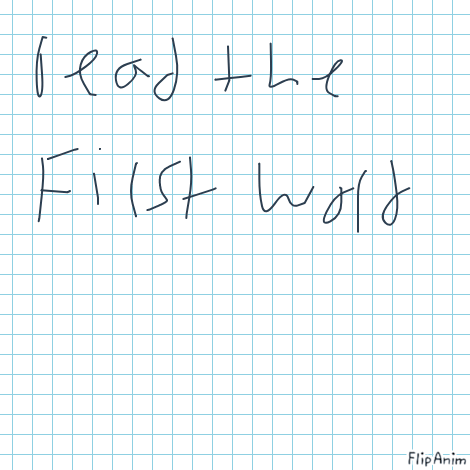 read the
First word
FlipAnim